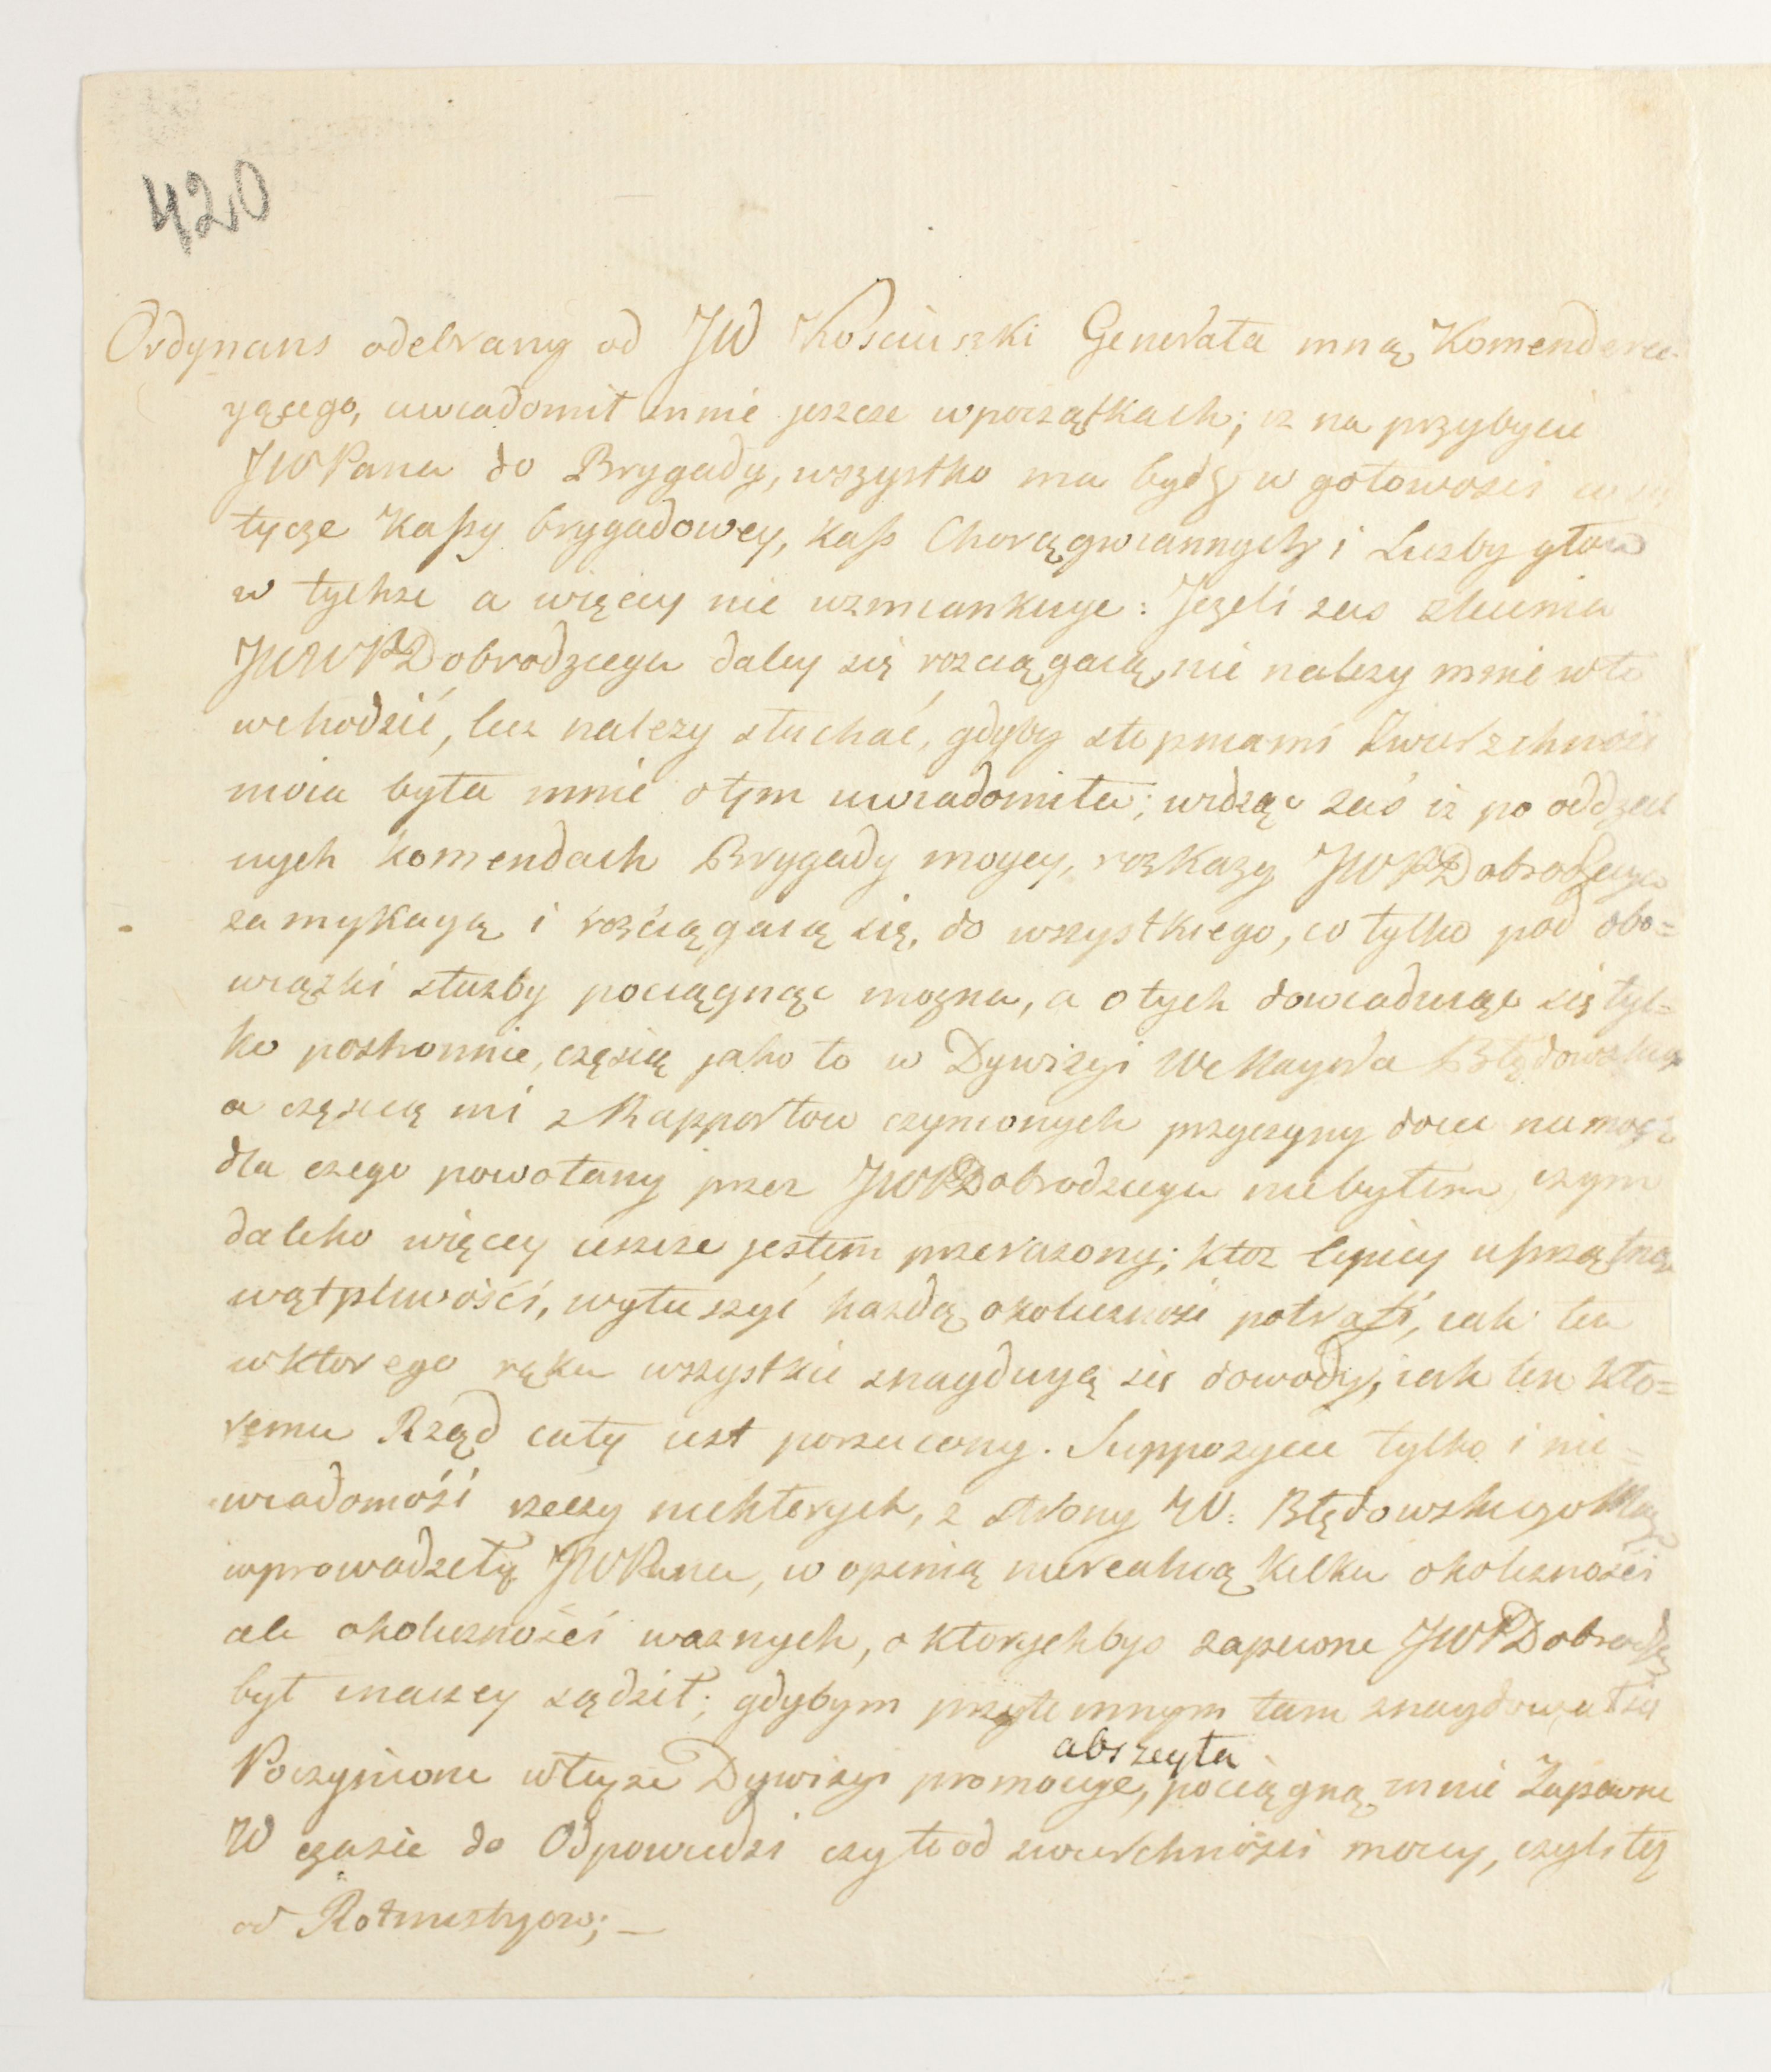 420
Ordynans odebrany od JW Kosciuszki Generała mną Komenderu-
yącego, uwiadomił mnie jeszcze wpoczątkach; iz na przybycie
JWPana do Brygady, wszystko ma bydz w gotowosci
tycze Kassy brygadowey, kass Chorągwiannych i Liczby głow
w tychze a więcey nie wzmiankuje: Jezeli zas zlecenia
JWWPDobrodzieya daley się rozciągaią, nie nalezy mnie w to
wchodzić, lecz nalezy słuchać, gdyby stopniami Zwierzchność
moia była mnie otym uwiadomiła; widząc zaś iz po oddziel
nych komendach Brygady moyey, rozkazy JWPDobrodzieya
zamykayą i rozciągaią się, do wszystkiego, co tylko pod obo=
wiązki słuzby pociągnąc mozna, a otych dowiaduiąc się tyl=
ko postronnie, częscią jako to w Dywizyi We Mayora Błędowskiego
a częscią mi z Rapportow czynionych przyczyny dociec nie mogę
dla czego powołany przez JWPDobrodzieya niebyłem, czym
daleko więcey ieszcze jestem przerazony; ktoz lepiey uprzątnąc
wątpliwości, wytuszyć kazdą okolicznosc potrafi, iak ten
wktorego ręku wszystkie znayduyą się dowody, iak ten kto=
remu Rząd cały iest porucony. Suppozycie tylko i nie=
wiadomość rzeczy niektorych, z strony W: Błędowskiego May
wprowadzyły JWPana, w opinią nierealną kilku okoliczności
ale okoliczności waznych, o ktorychbys zapewne JWPDobrodziey
był inaczey sądził; gdybym przytomnym tam znaydował się
Poczynione wteyze Dywizyi promocye, abszeyta pociągną mnie Zapewne
W czasie do Odpowiedzi czyto od zwierchności moiey, czyli tez
od Rotmistrzow; —